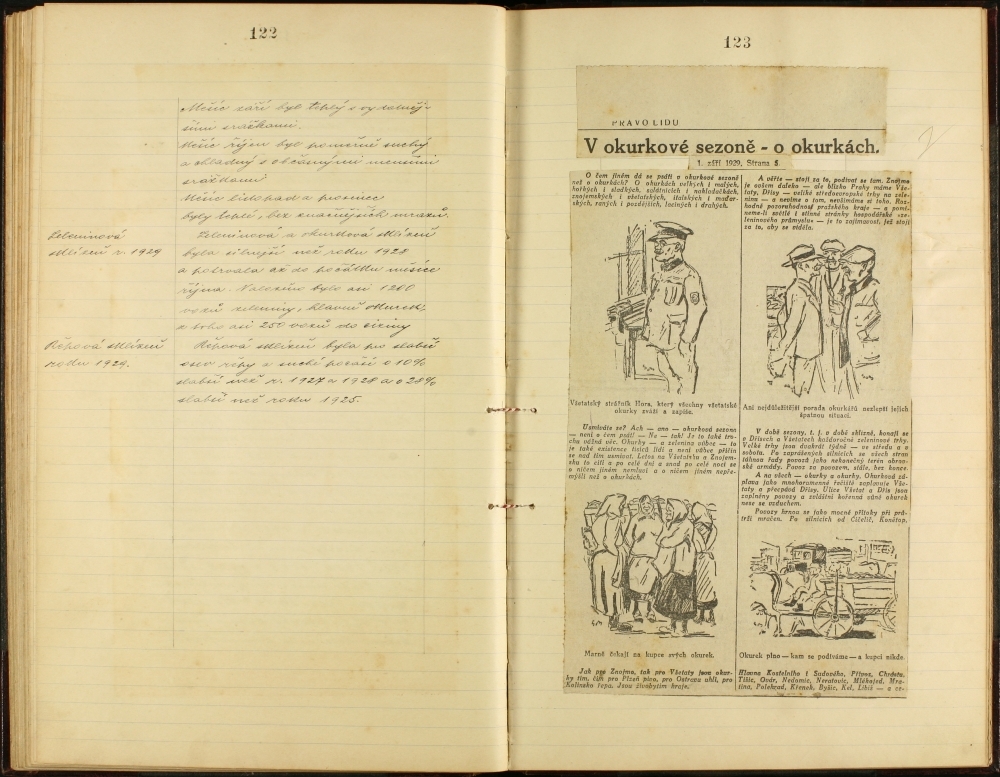 122
Měsíc září byl teplý s vydatněj-
šími srážkami.
Měsíc říjen byl poměrně suchý
a chladný s občasnými menšími
srážkami
Měsíc listopad a prosinec
byly teplé, bez znamějších mrazů.
Zeleninová
sklizeň r. 1929
Zeleninová a okurková sklizeň
byla silnější než roku 1928
a potrvala až do počátku měsíce
října. Naloženo bylo asi 1200
vozů zeleniny, hlavně okurek,
z toho asi 250 vozů do ciziny
Řepová sklizeň
roku 1929.
Řepová sklizeň byla po slabší
řepy a suché počasí o 10%
slabší než r. 1927 a 1928 a o 28%
slabší než roku 1925.
123
PRÁVO LIDU
V okurkové sezoně - o okurkách.
1. září 1929. Strana 5.
O čem jiném dá se psáti v okurkové sezoně
než o okurkách? O okurkách velkých i malých,
hořkých i sladkých, salátnicích i nakladačkách,
znojemských i všetatských, italských i maďar-
ských, raných i pozdějších, laciných i drahých.
Všetatský strážník Hora, který všechny všetatské
okurky zváží a zapíše.
Usmíváte se? Ach — ano — okurková sezona
— není o čem psáti — Ne — tak! Je to také tro-
chu vážná věc. Okurky — a zelenina vůbec — to
je také existence tisíců lidí a není vůbec příčin
se nad tím usmívat. Letos na Všetatsku a Znojem-
sku to cítí a po celé dni a snad po celé noci se
o ničem jiném nemluví a o ničem jiném nepře-
mýšlí než o okurkách.
Marně čekají na kupce svých okurek.
Jak pro Znojmo, tak pro Všetaty jsou okur-
ky tím, čím pro Plzeň pivo, pro Ostravu uhlí, pro
Kolínsko řepa. Jsou živobytím kraje.
A věřte — stojí za to, podívat se tam. Znojmo
je ovšem daleko — ale blízko Prahy máme Vše-
taty, Dřísy — veliké středoevropské trhy na zele-
ninu — a nevíme o tom, nevšímáme si toho. Roz-
hodně pozoruhodnost pražského kraje — a pomi-
neme-li světlé i stinné stránky hospodářské »ze-
leninového průmyslu« — je to zajímavost, jež stojí
za to, aby se viděla.
Ani nejdůležitější porada okurkářů nezlepší jejich
špatnou situaci.
V době sezony, t. j. v době sklizně, konají se
v Dřísech a Všetatech každoročně zeleninové trhy.
Velké trhy jsou dvakrát týdně — ve středu a v
sobotu. Po zaprášených silnicích se všech stran
táhnou řady povozů jako nekonečný terén obrov-
ské armády. Povoz za povozem, stále, bez konce.
A na všech — okurky a okurky. Okurková zá-
plava jako mnohoramenné řečiště zaplavuje Vše-
taty a přecpává Dřísy. Ulice Všetat a Dřís jsou
zaplněny povozy a zvláštní kořenná vůně okurek
nese se vzduchem.
Povozy ženou se jako mocné přítoky při prů-
trži mračen. Po silnicích od Čečelic, Konětop,
Okurek plno — kam se podíváme — a kupci nikde.
Hlavna Kostelního i Sudového, Přívor, Chrástu,
Tišic, Ovčár, Nedomic, Neratovic, Mlékojed, Mra-
tína, Polehrad, Křenek, Byšic, Kel, Liblic — a ce-